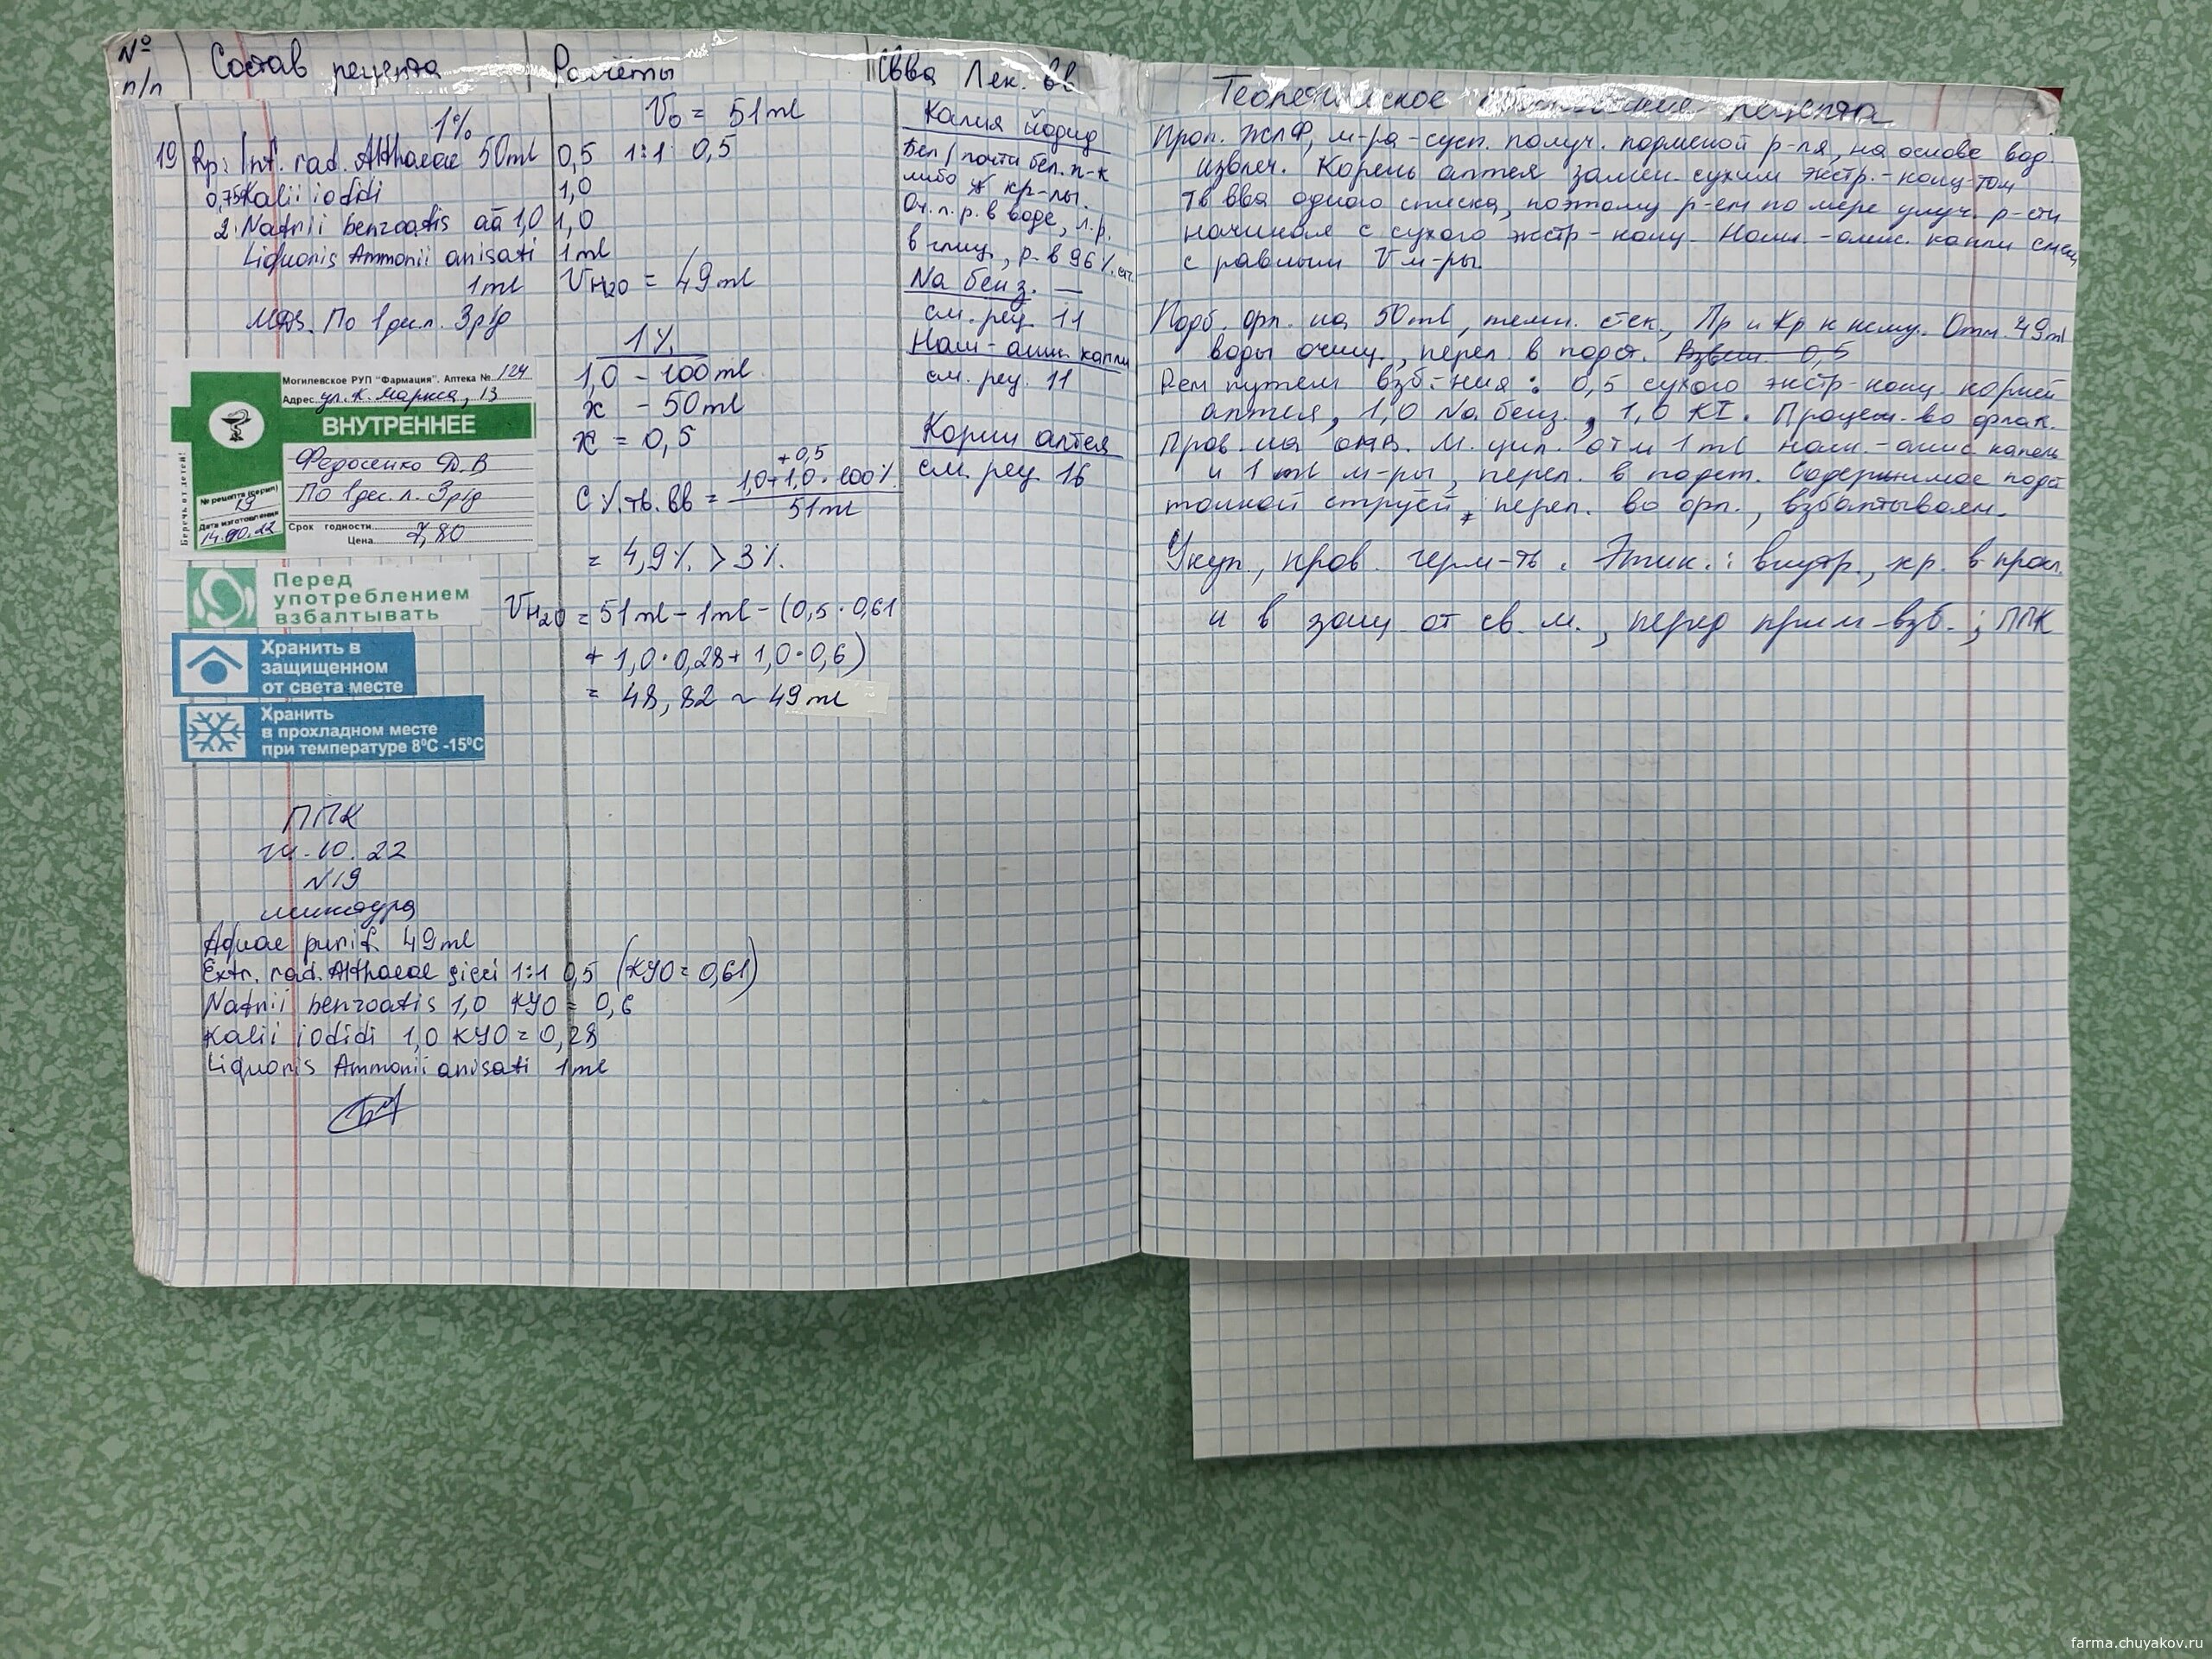 № п/п
Состав рецепта
Расчеты
Свва Лек. вв
1%
19 Rp: Inf. rad. Althaeae 50ml
0,75 Kalii iodidi
2. Natrii benzoatis aa 1,0
Liquoris Ammonii anisati
1ml
MDS. По 1 дес.л. 3р/д
Могилевское РУП "Фармация". Аптека № 124
Адрес ул. К. Маркса, 13
ВНУТРЕННЕЕ
Беречь от детей!
Федосенко Д.В
По 1дес. л. 3р/д
№ рецепта (серии)
19
Дата изготовления
14.10.22
Срок годности
Цена 7,80
Перед
употреблением
взбалтывать
Хранить в
защищенном
от света месте
Хранить
в прохладном месте
при температуре 8⁰С -15⁰С
ППК
14.10.22
N19
микстура
Aquae purif. 49ml
Extr. rad. Althaeae sicci 1:1 0,5 (КУО = 0,61)
Natrii benzoatis 1,0 КУО = 0,6
Kalii iodidi 1,0 КУО = 0,28
Liquoris Ammonii anisati 1ml
V₀ = 51ml
0,5 1:1 0,5
1,0
1,0
1ml
VH₂O = 49ml
1%
1,0 - 100ml
x - 50ml
x = 0,5
+0,5
C % тв. вв = 1,0+1,0 · 100%
51ml
= 4,9% > 3%
VH₂O = 51ml - 1ml - (0,5 · 0,61
+ 1,0 · 0,28 + 1,0 · 0,6)
= 48,82 ~ 49ml
Калия йодид
Бел/почти бел. п-к
либо кр-лы.
Оч. л. р. в воде, л.р.
в глиц., р. в 96% сп.
Na бенз. —
см. рец. 11
Наш-анис. капли
см. рец. 11
Корни алтея
см. рец 16
Теоретическое рецепта
Проп. ЖЛФ, м-ра-сусп. получ. подменой р-ля, на основе вод.
извлеч. Корень алтея замен. сухим экстр.-конц-том
Тв вва одного списка, поэтому р-ем по мере улуч. р-сти
начиная с сухого экстр-конц. Наш.-анис. капли смеш
с равным V м-ры.
Подб. орп. на 50ml, темн. стек., Пр и Кр к нему. Отм. 49ml
воды очищ., перел. в подст. Взвеш. 0,5
Рем путем взб-ния: 0,5 сухого экстр-конц. корней
алтея, 1,0 Na бенз., 1,0 KI. Процеж. во флак.
Пров. на отв. М. цил. отм 1ml наш.-анис капель
и 1ml м-ры, перел. в подст. Содержимое подст
тонкой струёй перел. во орп., взбалтываем.
Укуп., пров. герм-ть. Этик.: внутр., хр. в прохл.
и в защ. от св. м., перед прим-взб.; ППК
farma.chuyakov.ru